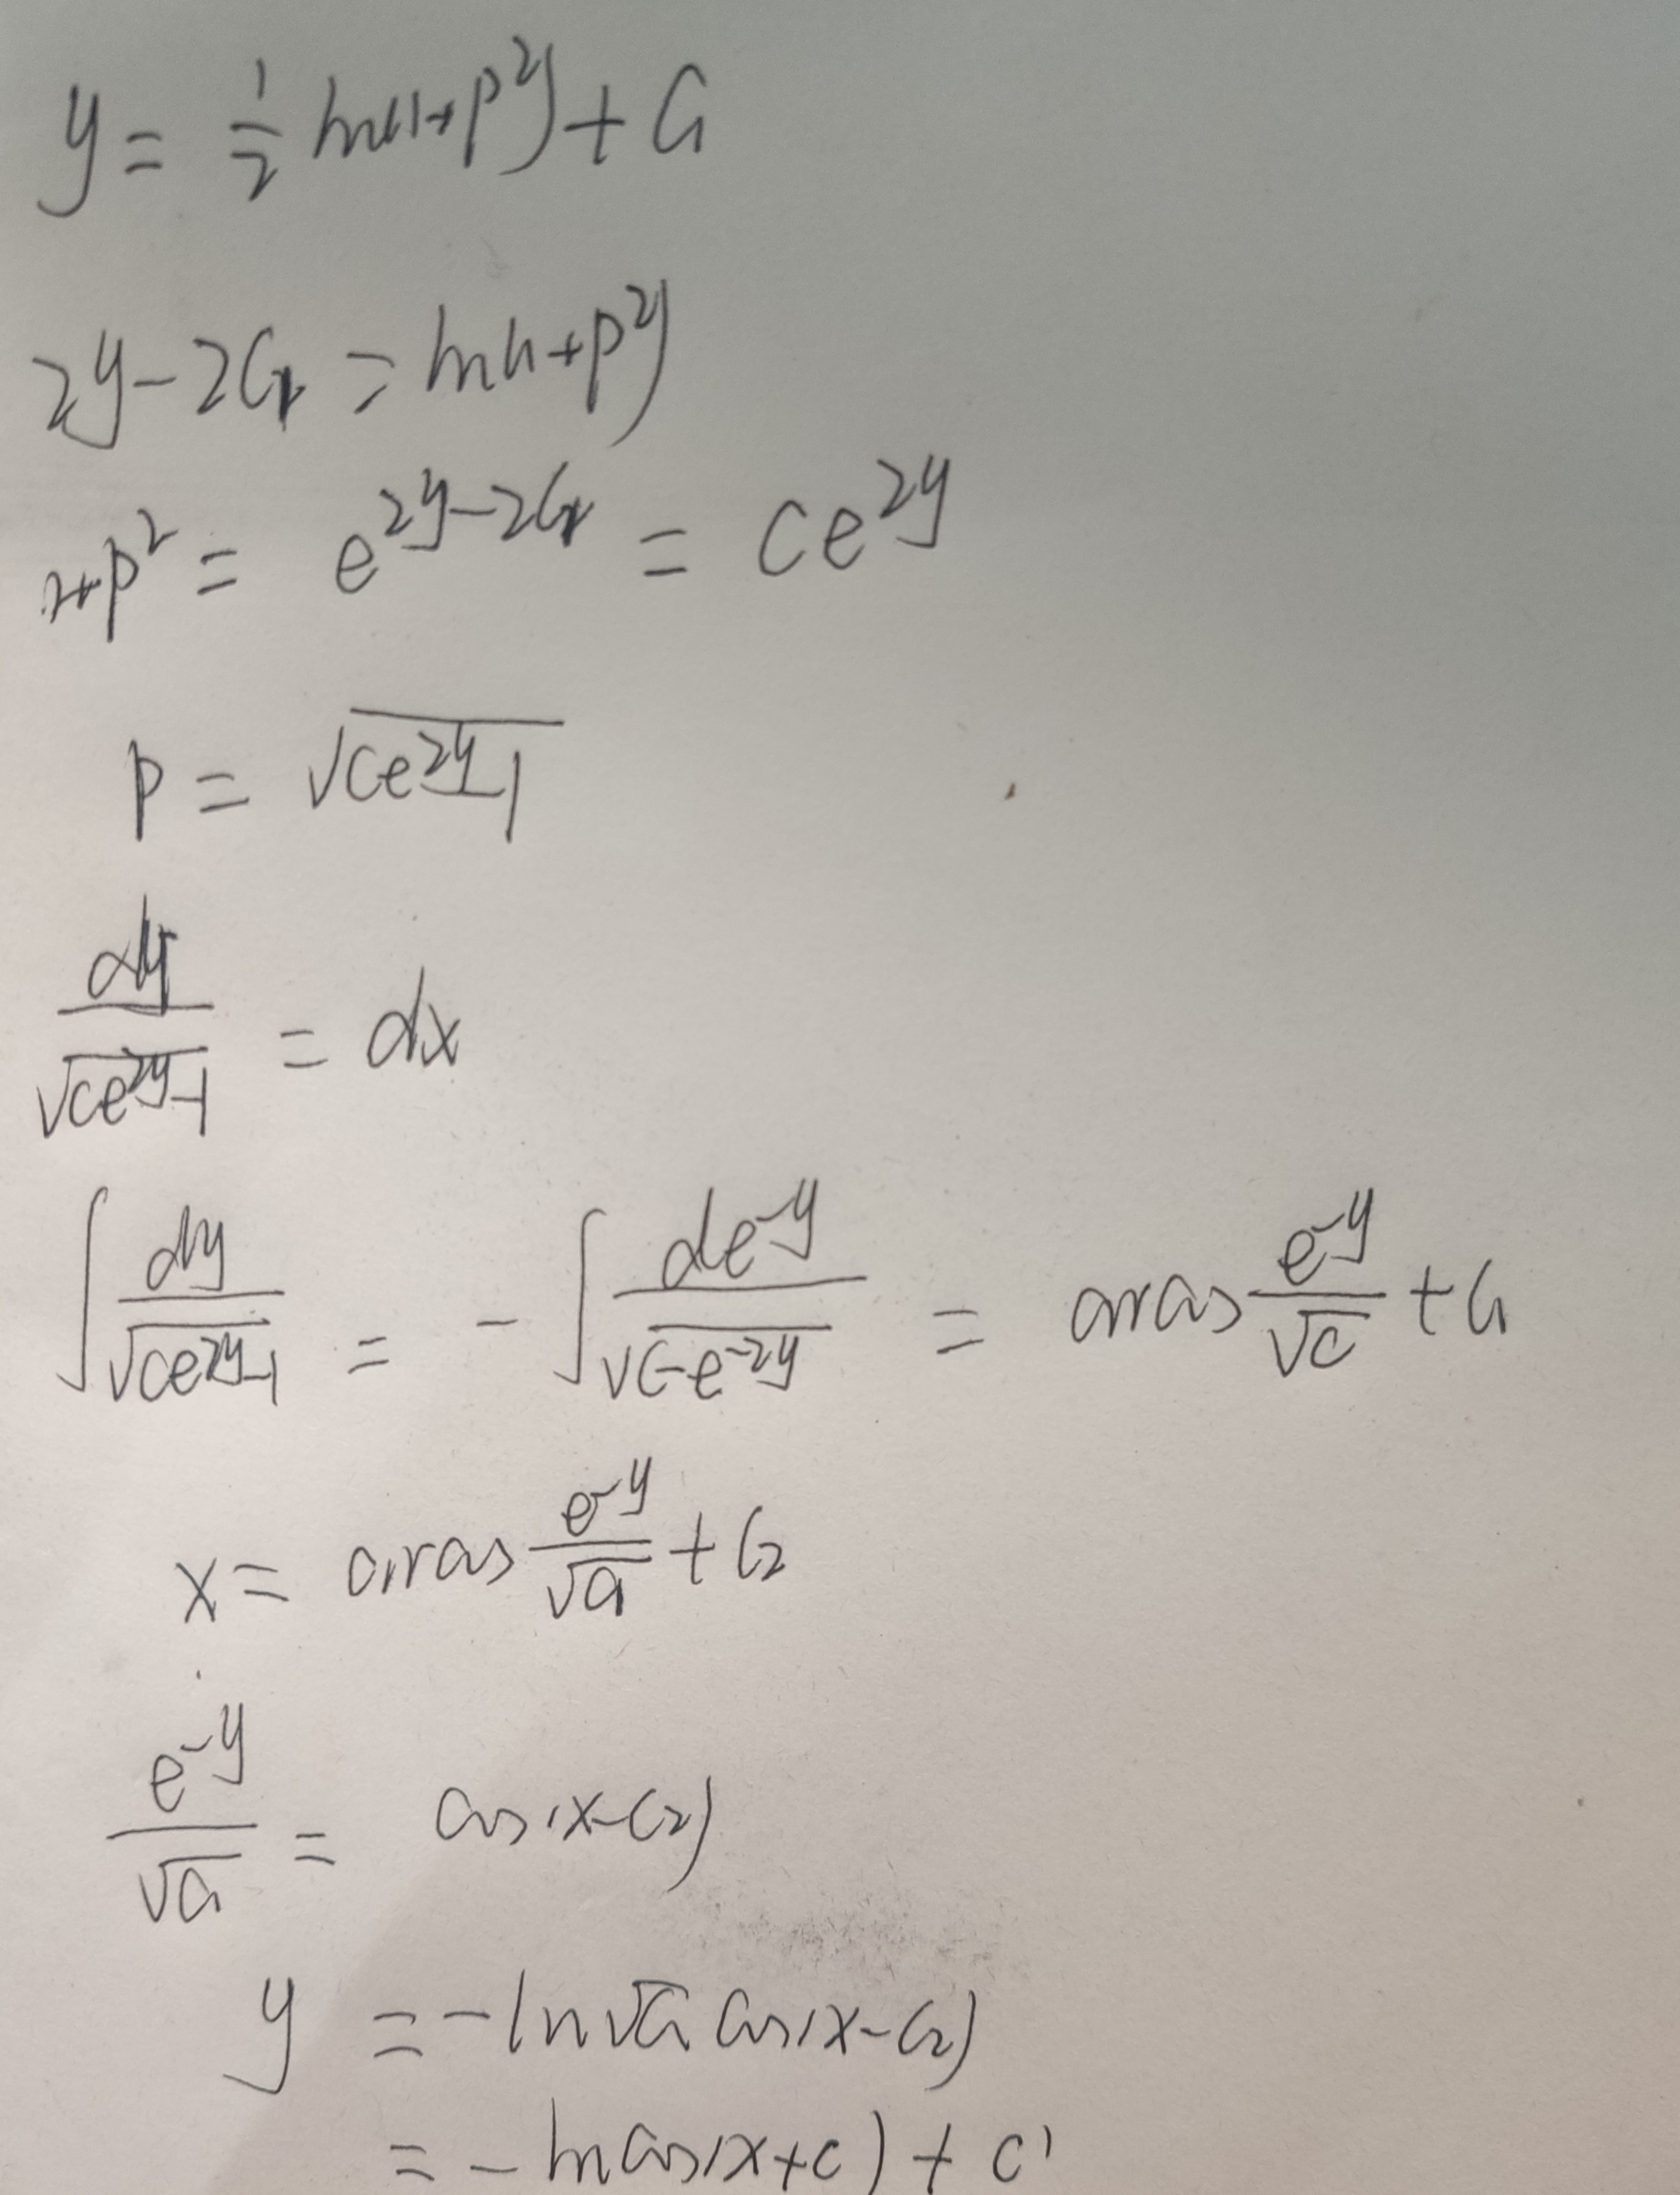 y = 1/2 ln(1+p²) + C₁
2y - 2C₁ = ln(1+p²)
1+p² = e^{2y-2C₁} = Ce^{2y}
p = √(Ce^{2y}-1)
dy/√(Ce^{2y}-1) = dx
∫ dy/√(Ce^{2y}-1) = -∫ de^{-y}/√(C-e^{-2y}) = arccos e^{-y}/√C + C₁
x = arccos e^{-y}/√C₁ + C₂
e^{-y}/√C₁ = cos(x-C₂)
y = -ln√C₁ cos(x-C₂)
= -ln cos(x+C) + C'